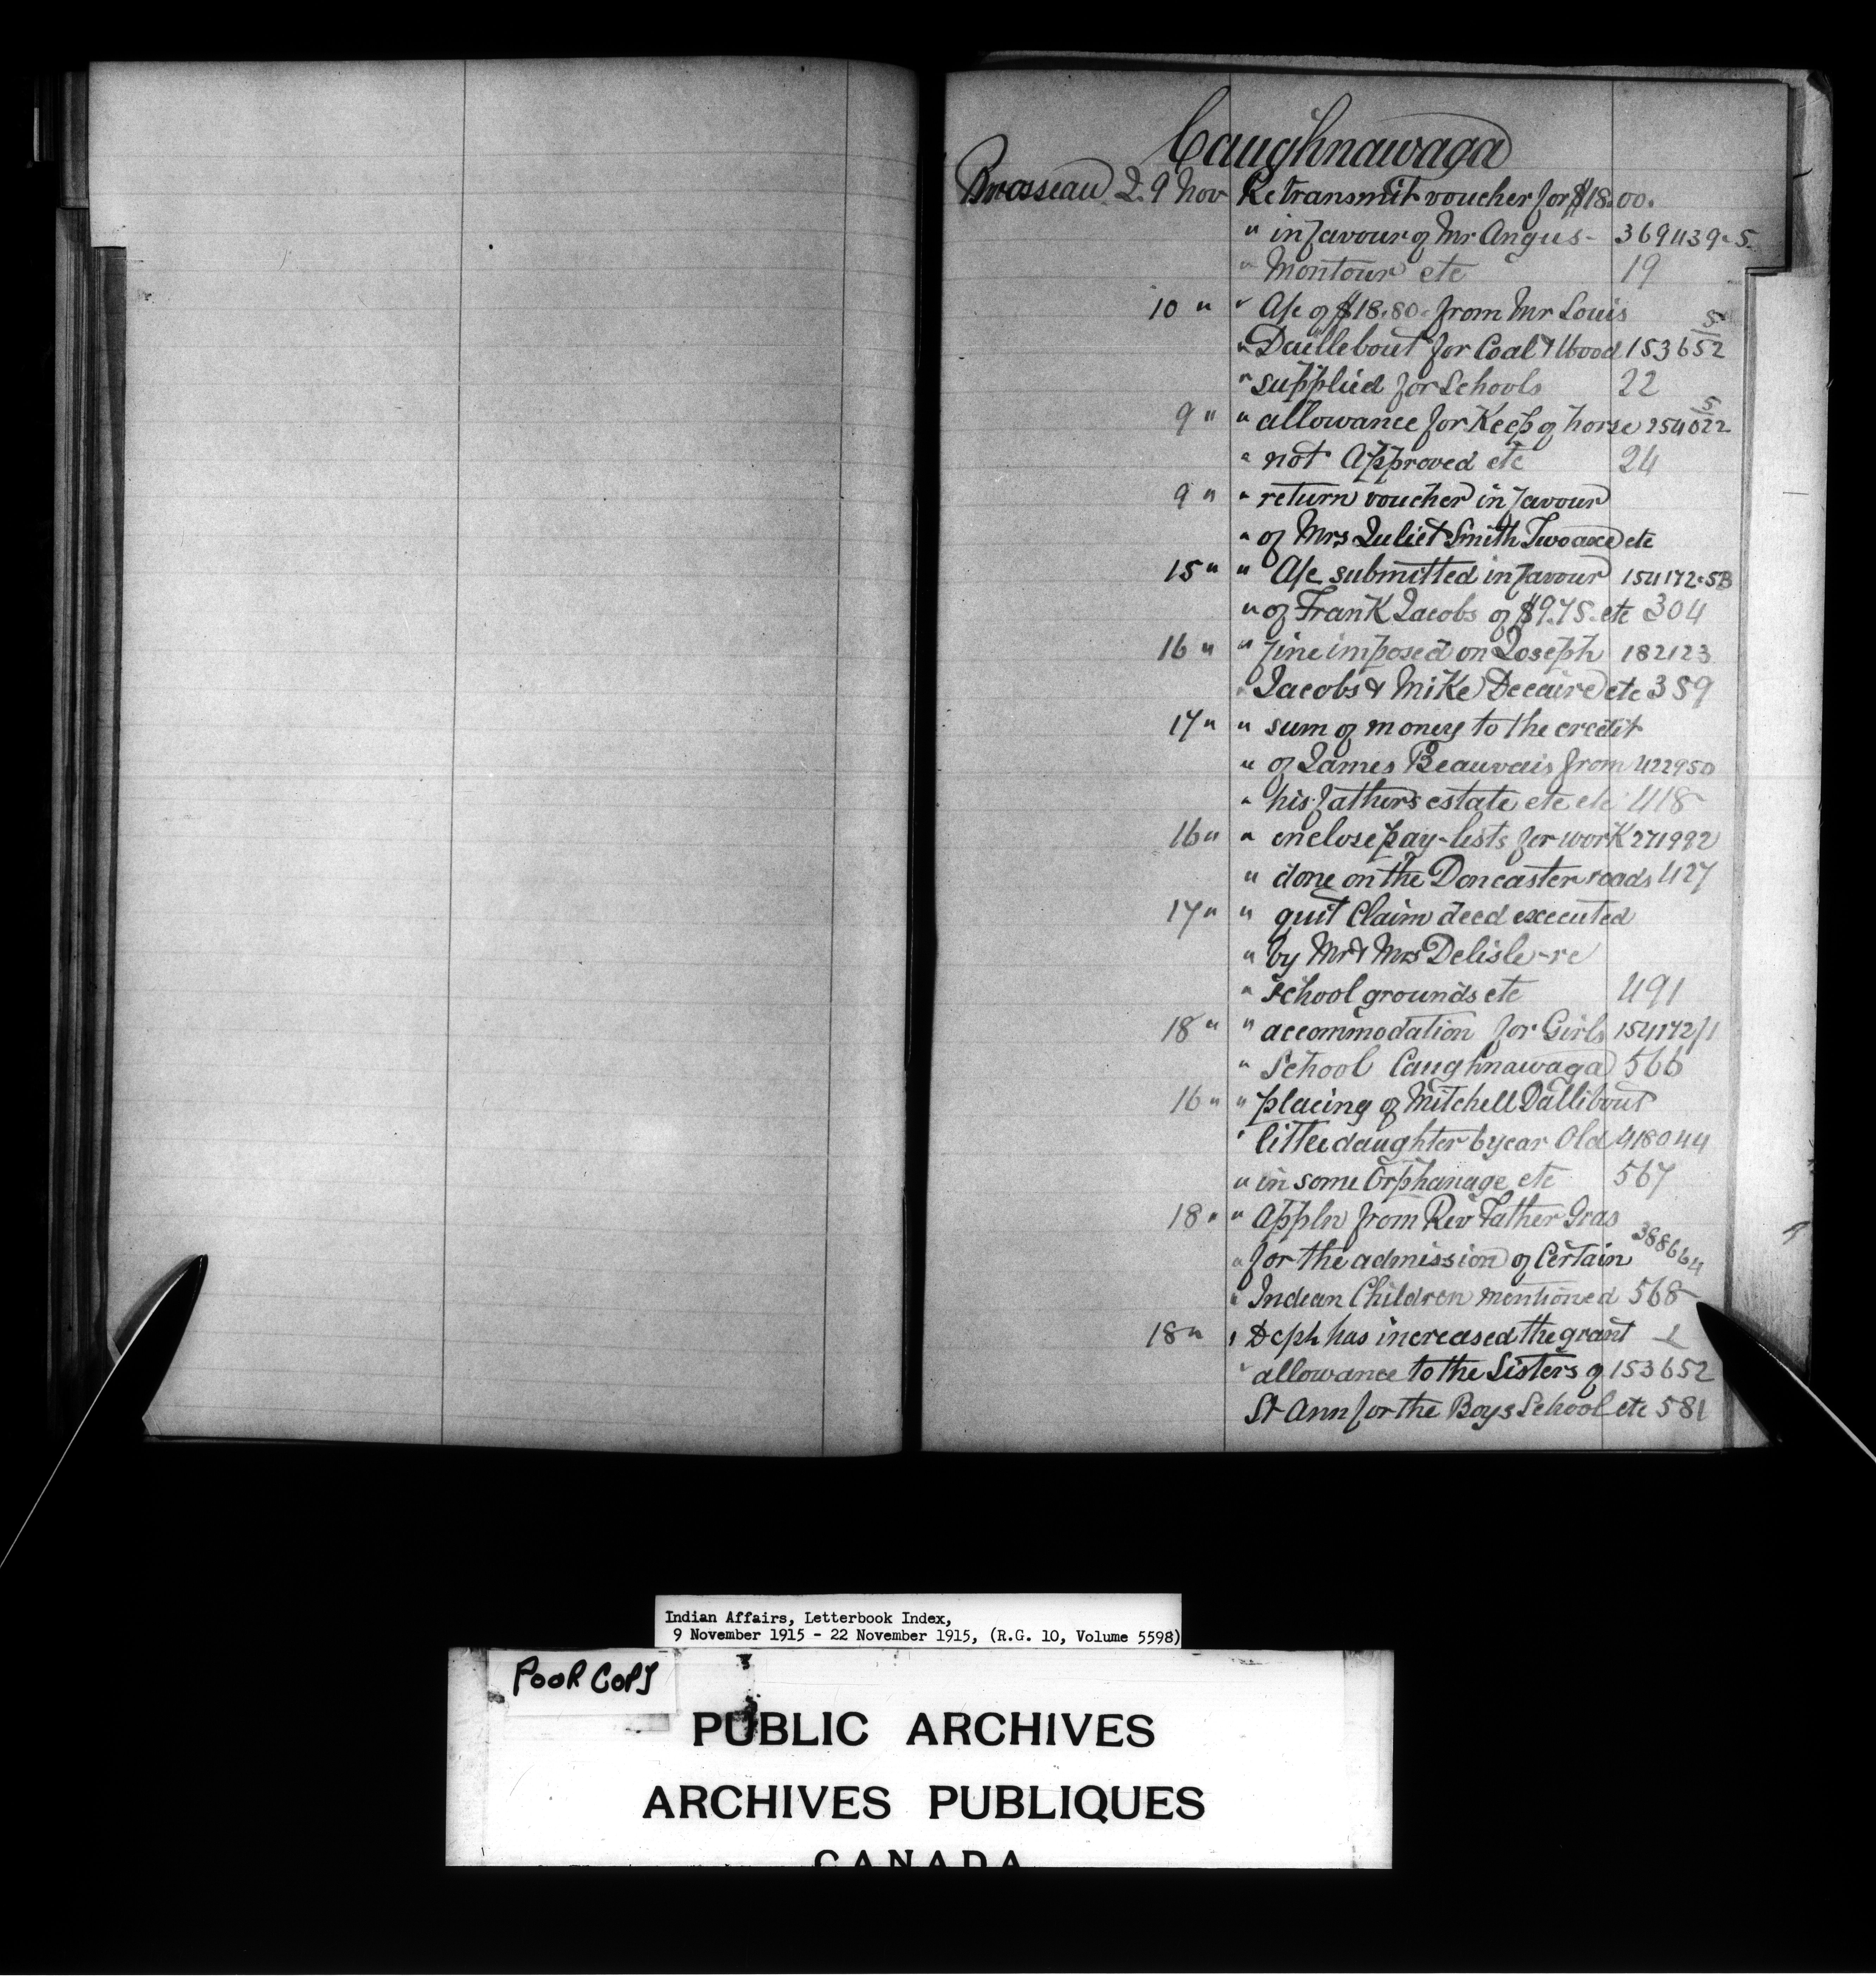 Caughnawaga
Brosseau J. 9 Nov Re transmit voucher for $18.00.
" in favour of Mr Angus - 369439-5
" Montour etc 19
10 " " A/c of $18.80. from Mr Louis 5
" Daillebout for Coal & Wood 153652
" supplied for Schools 22
9 " " allowance for Keep of horse 254022 5
" not Approved etc 24
9 " " return voucher in favour
" of Mrs Juliet Smith Twoaxe etc
15 " " A/c submitted in favour 154172-5B
" of Frank Jacobs of $9.75. etc 304
16 " " fine imposed on Joseph 182123
" Jacobs & Mike Decaire etc 389
17 " " sum of money to the credit
" of James Beauvais from 422950
" his fathers estate etc etc 418
16 " " enclose pay-lists for work 271992
" done on the Doncaster roads 427
17 " " quit Claim deed executed
" by Mr & Mrs Delisle - re
" school grounds etc 491
18 " " accommodation for Girls 154172/1
" School Caughnawaga 566
16 " " placing of Mitchell Dallibout
" little daughter 6 year Old 418044
" in some Orphanage etc 567
18 " " Appln from Rev Father Gras
" for the admission of Certain 388664
" Indian Children mentioned 568
18 " " Dept has increased the grant
" allowance to the Sisters of 153652
St Ann for the Boys School etc 581
Indian Affairs, Letterbook Index,
9 November 1915 - 22 November 1915, (R.G. 10, Volume 5598)
POOR COPY
PUBLIC ARCHIVES
ARCHIVES PUBLIQUES
CANADA